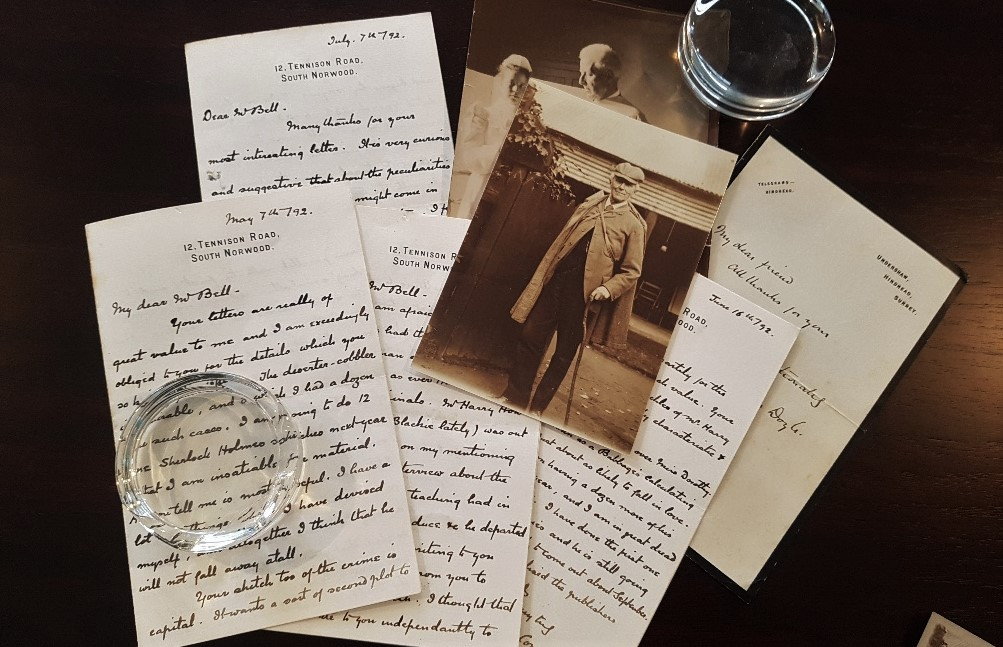 July. 7th/92.
12, TENNISON ROAD,
SOUTH NORWOOD.
Dear Mr Bell.
Many thanks for your
most interesting letter. It is very curious
and suggestive that about the peculiarities
might come in
May 7th/92.
12, TENNISON ROAD,
SOUTH NORWOOD.
My dear Mr Bell.
Your letters are really of
great value to me and I am exceedingly
obliged to you for the details which you
The deserter-cobbler
is I had a dozen
such cases. I am going to do 12
Sherlock Holmes sketches next year
that I am insatiable for material.
tell me is most useful. I have a
lot things I have devised
myself, altogether I think that he
will not fall away atall.
Your sketch too of the crime is
capital. It wants a sort of second plot to
12, TENNISON R
SOUTH NORW
Mr Bell.
am afraid
had th
as ever
inals. Mr Harry How
Blackie lately) was out
on my mentioning
terview about the
teaching had in
duce he departed
riting to you
rom you to
. I thought that
to you independantly to
June 16th/92.
ROAD,
OOD.
for the
value. Your
of Mr. Harry
characteristic &
once Miss Dorothy.
as a Babbage's calculating
about as likely to fall in love.
having a dozen more of his
year, and I am in great dread
I have done the first one
and he is still going
to come out about September.
said the publishers
TELEGRAMS—
HINDHEAD.
UNDERSHAW,
HINDHEAD,
SURREY.
My dear friend
All thanks for your
Doyle.